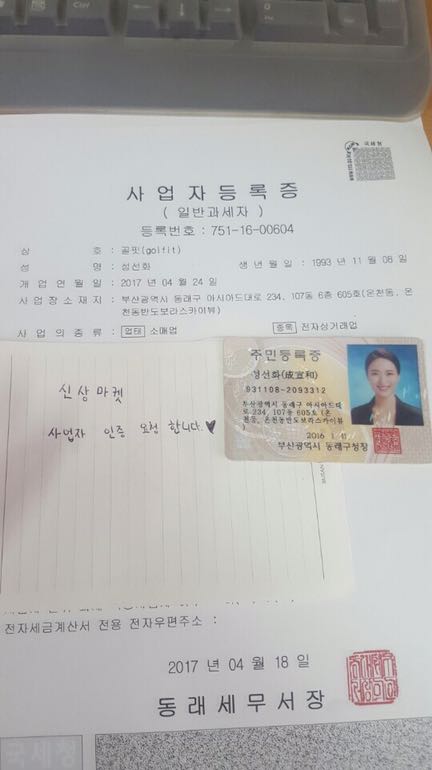 Ctrl
국세청
사업자등록증
( 일반과세자 )
등록번호 : 751-16-00604
상 호 : 골핏(golfit)
성 명 : 성선화 생 년 월 일 : 1993 년 11 월 08 일
개 업 연 월 일 : 2017 년 04 월 24 일
사 업 장 소 재 지 : 부산광역시 동래구 아시아드대로 234, 107동 6층 605호(온천동, 온
천동반도보라스카이뷰)
사 업 의 종 류 : 업태 소매업 종목 전자상거래업
신상마켓
사업자 인증 요청 합니다.♥
주민등록증
성선화(成宣和)
931108-2093312
부산광역시 동래구 아시아드대
로 234, 107동 605호 (온
천동, 온천동반도보라스카이뷰
)
2016
부산광역시 동래구청장
전자세금계산서 전용 전자우편주소 :
2017 년 04 월 18 일
동래세무서장
국세청